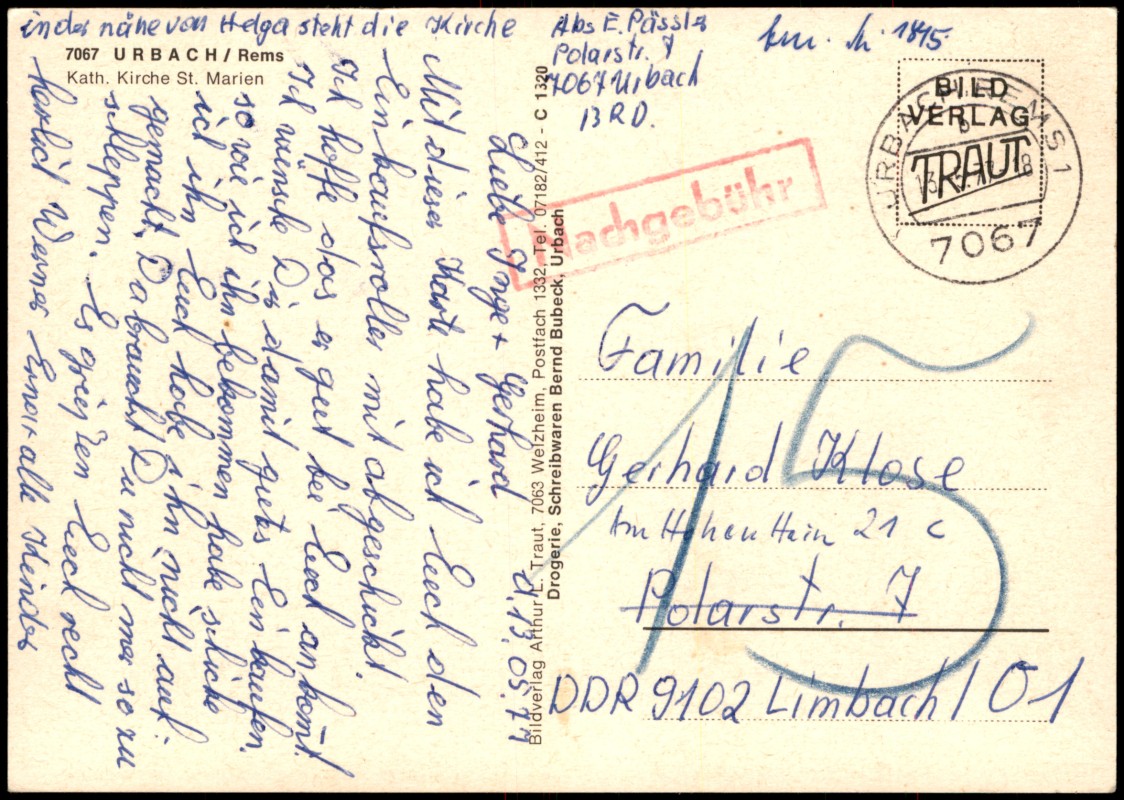 in der nähe von Helga steht die Kirche
7067 URBACH / Rems
Kath. Kirche St. Marien
Abs E. Pässler
Polarstr. 7
7067 Urbach
BRD.
1815
BILD
VERLAG
TRAUT
URBACH, REMS 1
b
7067
Nachgebühr
d. 13.05.77
Liebe Inge + Gerhard
Mit dieser Karte habe ich Euch den
Einkaufsroller mit abgeschickt.
Ich hoffe das er gut bei Euch ankomt.
Ich wünsche Dir damit guts Einkaufen.
so wie ich ihn bekommen habe schicke
ich ihn Euch habe ihn nicht auf
gemacht. Da brauchst Du nicht mer so zu
schleppen. Es grüzen Euch recht
Herlich Werner Erna + alle Kinder
Bildverlag Arthur L. Traut, 7063 Welzheim, Postfach 1332, Tel. 07182/412 - C 1320
Drogerie, Schreibwaren Bernd Bubeck, Urbach
15
Familie
Gerhard Klose
Am Hohen Hain 21 c
Polarstr. 7
DDR 9102 Limbach / O 1